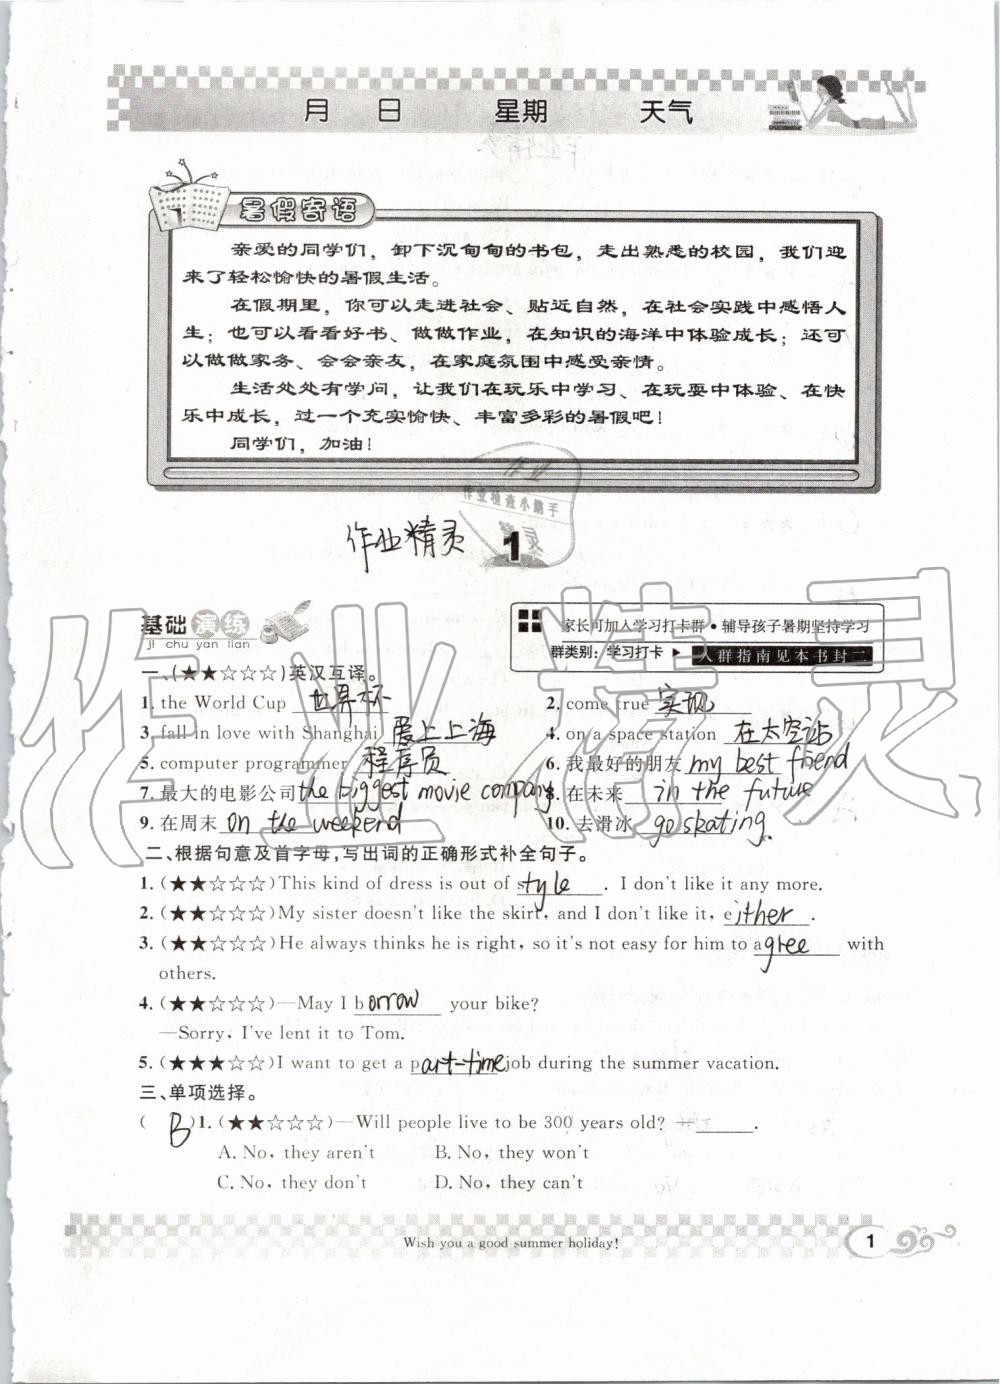 月 日 星期 天气
暑假寄语
亲爱的同学们，卸下沉甸甸的书包，走出熟悉的校园，我们迎
来了轻松愉快的暑假生活。
在假期里，你可以走进社会、贴近自然，在社会实践中感悟人
生；也可以看看好书、做做作业，在知识的海洋中体验成长；还可
以做做家务、会会亲友，在家庭氛围中感受亲情。
生活处处有学问，让我们在玩乐中学习、在玩耍中体验、在快
乐中成长，过一个充实愉快、丰富多彩的暑假吧！
同学们，加油！
作业
作业检查小助手
精灵
作业精灵
1
基础演练
ji chu yan lian
家长可加入学习打卡群·辅导孩子暑期坚持学习
群类别：学习打卡 ▶ 入群指南见本书封二
作业精灵
一、(★★☆☆☆)英汉互译。
1. the World Cup 世界杯 2. come true 实现
3. fall in love with Shanghai 爱上上海 4. on a space station 在太空站
5. computer programmer 程序员 6. 我最好的朋友 my best friend
7. 最大的电影公司 the biggest movie company 8. 在未来 in the future
9. 在周末 on the weekend 10. 去滑冰 go skating.
二、根据句意及首字母，写出词的正确形式补全句子。
1. (★★☆☆☆)This kind of dress is out of style. I don't like it any more.
2. (★★☆☆☆)My sister doesn't like the skirt, and I don't like it, either.
3. (★★☆☆☆)He always thinks he is right, so it's not easy for him to agree with
others.
4. (★★☆☆☆)—May I borrow your bike?
—Sorry, I've lent it to Tom.
5. (★★★☆☆)I want to get a part-time job during the summer vacation.
三、单项选择。
( B )1. (★★☆☆☆)—Will people live to be 300 years old? —______.
A. No, they aren't B. No, they won't
C. No, they don't D. No, they can't
Wish you a good summer holiday!
1